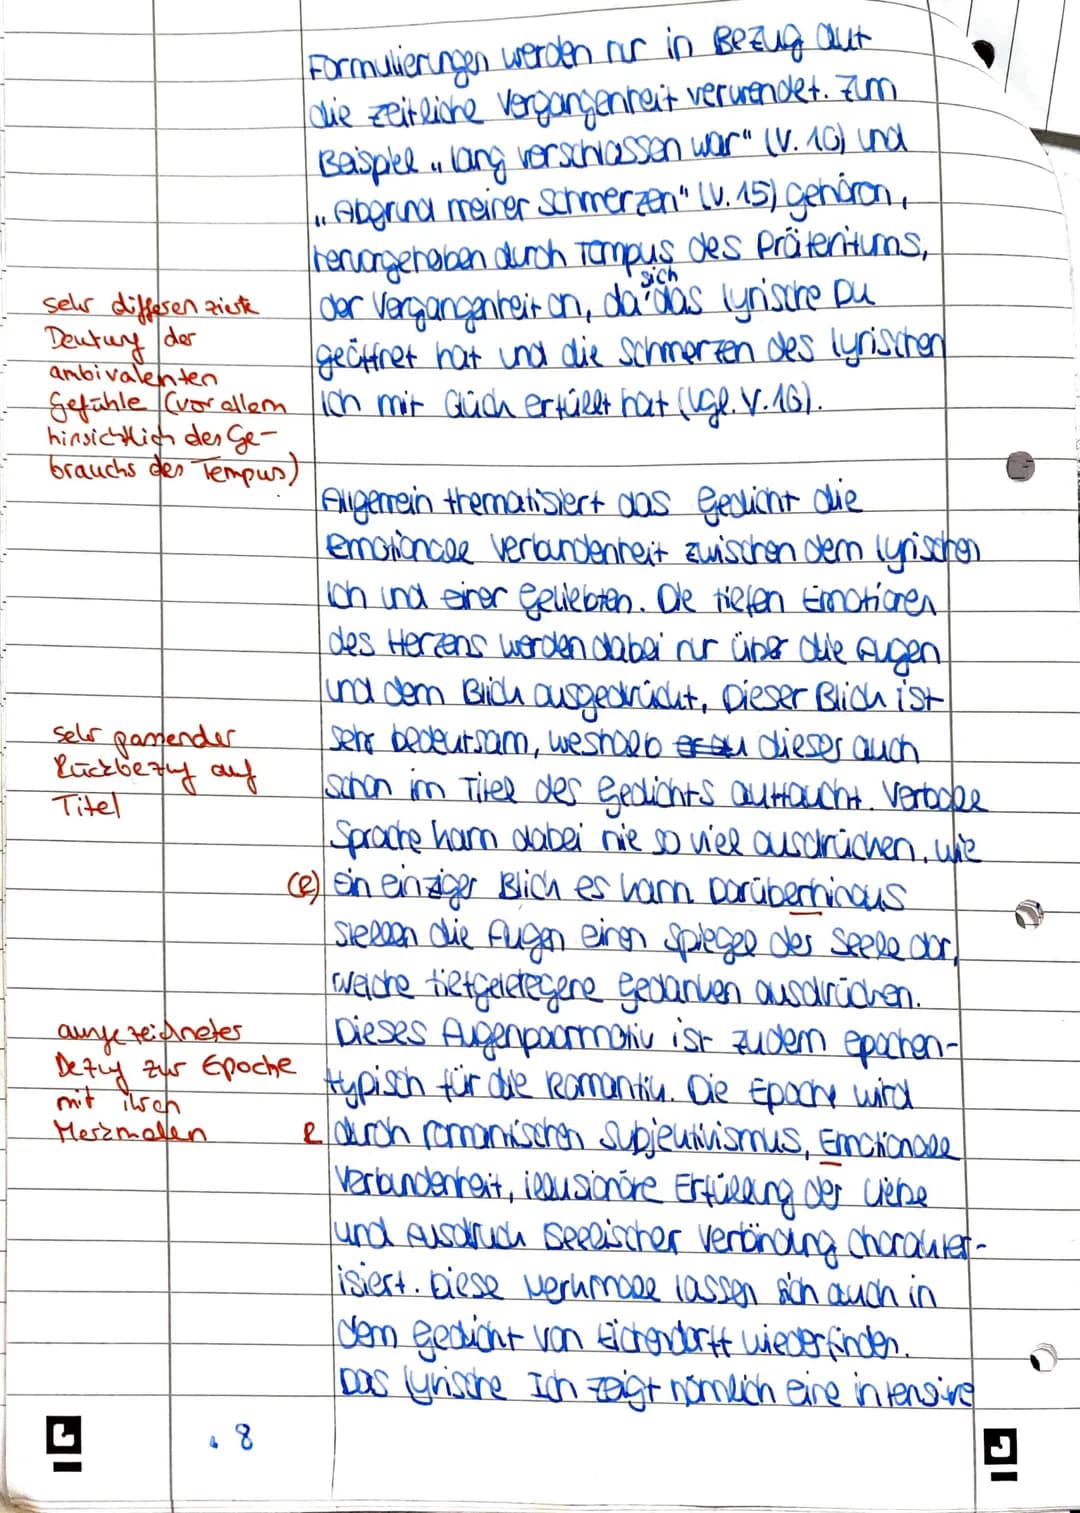 Formulierungen werden nur in Bezug auf
die zeitliche Vergangenheit verwendet. Zum
Beispiel „lang verschlossen war" (V. 10) und
„Abgrund meiner Schmerzen" (V. 15) gehören,
hervorgehoben durch Tempus des Präteritums,
sich
der Vergangenheit an, da das lyrische Du
geöffnet hat und die Schmerzen des lyrischen
Ich mit Glück erfüllt hat (vgl. V. 16).
sehr differenzierte
Deutung der
ambivalenten
Gefühle (vor allem
hinsichtlich des Ge-
brauchs des Tempus)
Allgemein thematisiert das Gedicht die
emotionale Verbundenheit zwischen dem lyrischen
Ich und einer Geliebten. Die tiefen Emotionen
des Herzens werden dabei nur über die Augen
und dem Blick ausgedrückt. Dieser Blick ist
sehr bedeutsam, weshalb dieses auch
schon im Titel des Gedichts auftaucht. Verbale
Sprache kann dabei nie so viel ausdrücken, wie
sehr passender
Rückbezug auf
Titel
(e) ein einziger Blick es kann. Darüberhinaus
stellen die Augen einen Spiegel der Seele dar,
welche tiefgelegene Gedanken ausdrücken.
Dieses Augenpaarmotiv ist zudem epochen-
typisch für die Romantik. Die Epoche wird
R durch romanischen Subjektivismus, Emotionale
Verbundenheit, illusionäre Erfüllung der Liebe
und Ausdruck seelischer Verbindung charakter-
isiert. Diese Merkmale lassen sich auch in
dem Gedicht von Eichendorff wiederfinden.
Das lyrische Ich zeigt nämlich eine intensive
ausgezeichneter
Bezug zur Epoche
mit ihren
Merkmalen
8